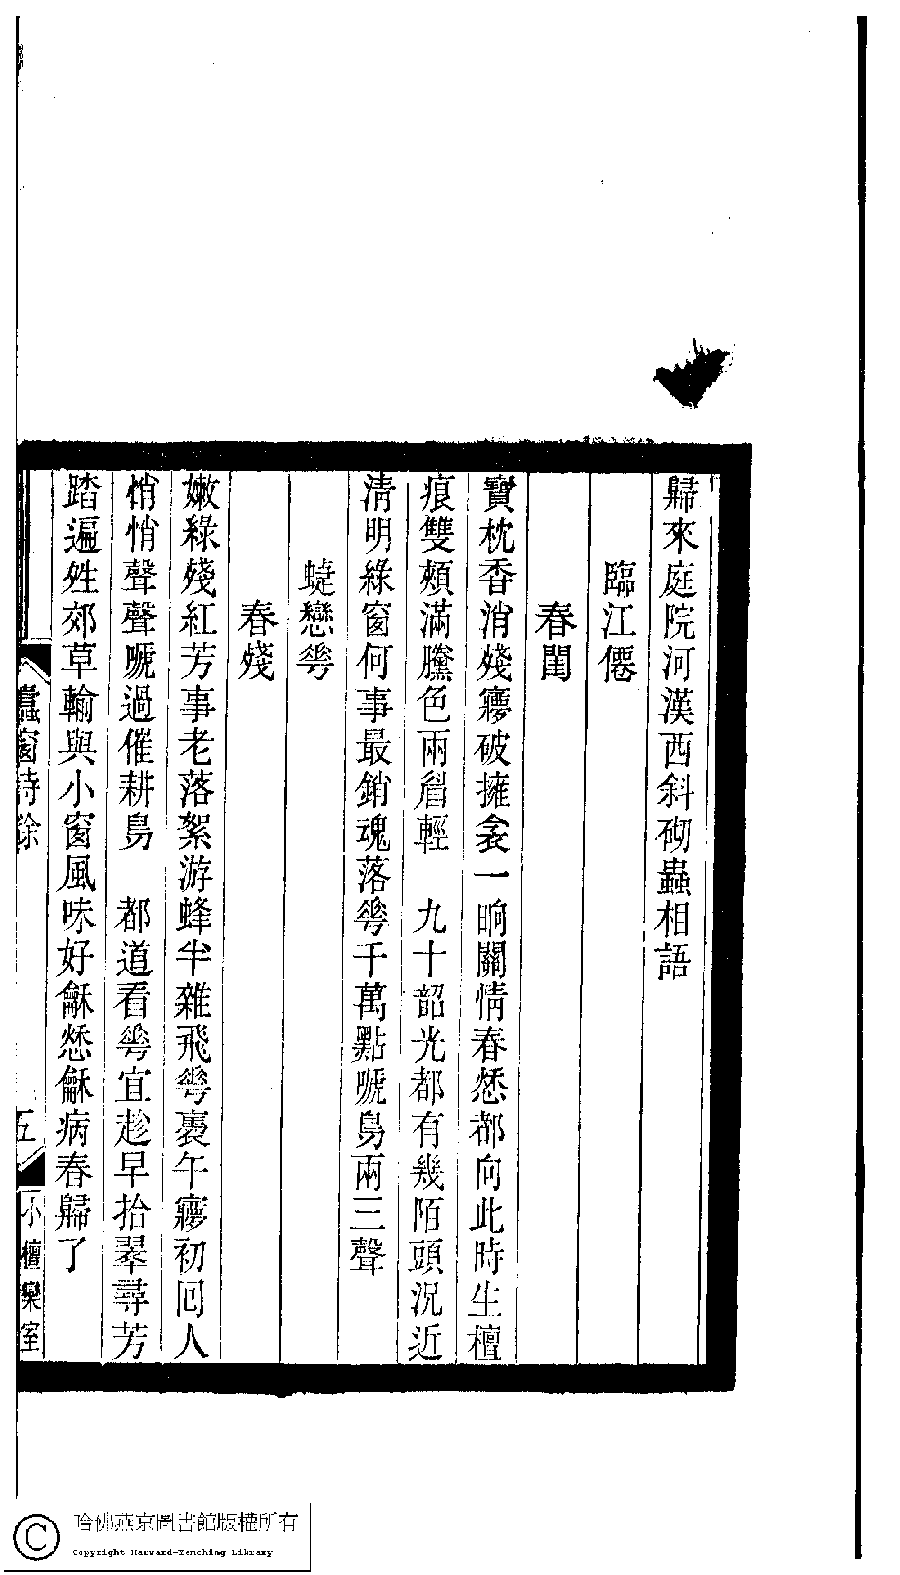 歸來庭院河漢西斜砌蟲相語
臨江僊
春閨
寶枕香消殘㝱破擁衾一晌關情春愁都向此時生檀
痕雙頰滿黱色兩睂輕　九十韶光都有幾陌頭況近
清明綠窗何事最銷魂落蕐千萬點嗁鳥兩三聲
蜨戀蕐
春殘
嫩綠殘紅芳事老落絮游蜂半雜飛蕐裊午㝱初回人
悄悄聲聲嗁過催耕鳥　都道看蕐宜趁早拾翠尋芳
踏遍甡郊草輸與小窗風味好龢愁龢病春歸了
蠧窗詩餘
五
小檀欒室
哈佛燕京圖書館版權所有
Copyright Harvard-Yenching Library